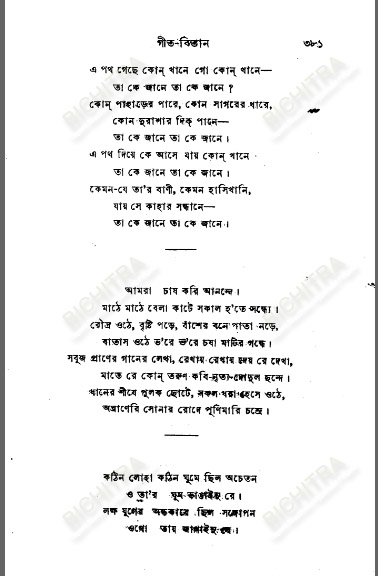 গীত-বিতান ৩৮১
এ পথ গেছে কোন্ খানে গো কোন্ খানে—
তা কে জানে তা কে জানে ?
কোন্ পাহাড়ের পারে, কোন সাগরের ধারে,
কোন দুরাশার দিক্ পানে—
তা কে জানে তা কে জানে ।
এ পথ দিয়ে কে আসে যায় কোন্ খানে
তা কে জানে তা কে জানে ।
কেমন-যে তা'র বাণী, কেমন হাসিখানি,
যায় সে কাহার সন্ধানে—
তা কে জানে তা কে জানে ।
আমরা চাষ করি আনন্দে ।
মাঠে মাঠে বেলা কাটে সকাল হ'তে সন্ধ্যে ।
রৌদ্র ওঠে, বৃষ্টি পড়ে, বাঁশের বনে পাতা নড়ে,
বাতাস ওঠে ভ'রে ভ'রে চষা মাটির গন্ধে ।
সবুজ প্রাণের গানের লেখা, রেখায় রেখায় দেয় রে দেখা,
মাতে রে কোন্ তরুণ কবি নৃত্য-দোদুল ছন্দে ।
ধানের শীষে পুলক ছোটে, সকল ধরা হেসে ওঠে,
অঘ্রাণেরি সোনার রোদে পূর্ণিমারি চন্দ্রে ।
কঠিন লোহা কঠিন ঘুমে ছিল অচেতন
ও তা'র ঘুম ভাঙাইনু রে ।
লক্ষ যুগের অন্ধকারে ছিল সঙ্গোপন
ওগো তায় জাগাইনু রে ।
BICHITRA